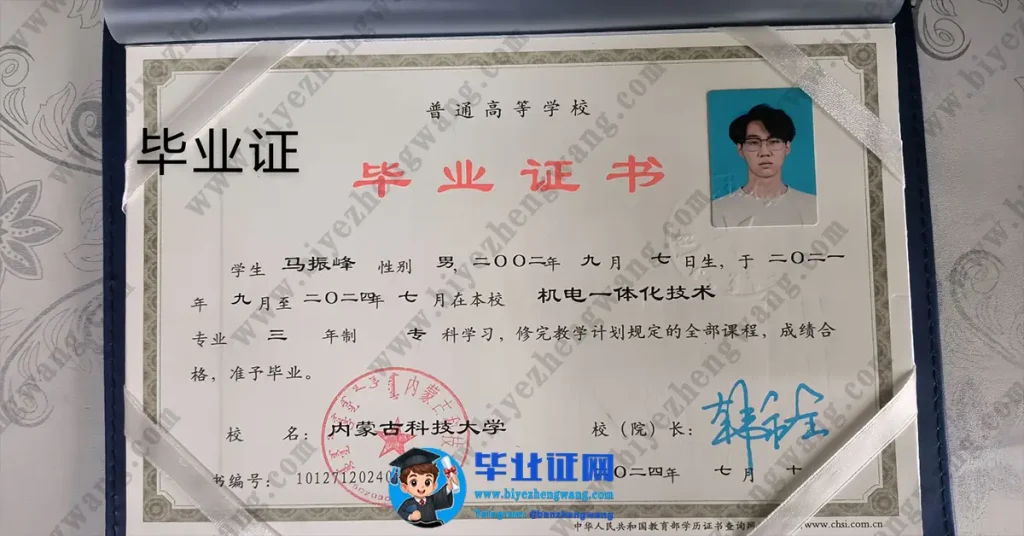 普通高等学校
毕业证
毕业证书
学生 马振峰 性别 男，二〇〇二年 九 月 七 日生，于 二〇二一
年 九 月至 二〇二四年 七 月在本校 机电一体化技术
专业 三 年制 专 科学习，修完教学计划规定的全部课程，成绩合
格，准予毕业。
内蒙古
校 名：内蒙古科技大学 校（院）长：
书编号： 10127120240
二〇二四年 七 月 十
毕业证网
www.biyezhengwang.com
Telegram: @banzhengwang
中华人民共和国教育部学历证书查询网 www.chsi.com.cn
www.biyezhengwang.com